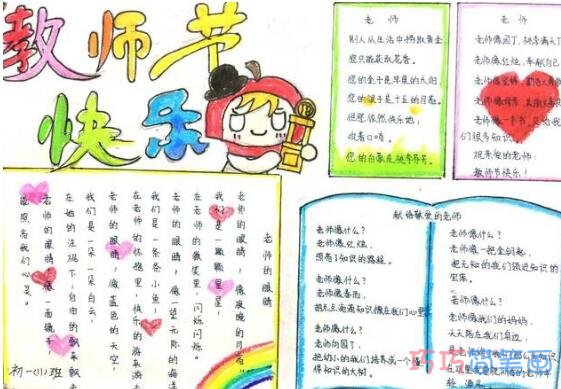 教师节
快乐
老师
别人从生活中捞取黄金,
您只能获取花香。
您的金子是早晨的太阳,
您的银子是十五的月亮。
但您依然快乐地,
您的白发是桃李芬芳。
老师
老师像园丁,桃李满天下
老师像红烛,奉献自己
老师像一本书,
们很多知识。
祝亲爱的老师:
教师节快乐!
老师的眼睛
老师的眼睛,像夜晚的月亮,
我们是一颗颗星星,
在老师的微笑里,闪烁闪烁。
老师的眼睛,像一望无际的海洋
我们是一条条小鱼,
在老师的怀抱里,快乐的游来游
老师的眼睛,像蓝色的天空,
我们是一朵一朵白云,
在她的注视下,自由的飘来飘去
老师的眼睛像一面镜子,
照亮我们心灵。
初一(1)班
献给敬爱的老师
老师像什么?
老师像红烛,
照亮了知识的路程。
老师像什么?
老师像春雨,
把点点滴滴知识播在我们心里
老师像什么?
老师向园丁,
把幼小的我们培养成一个
得知识的大树。
老师像什么?
老师像一把金钥匙,
把无知的我们领进知识的
宝库。
老师像什么?
老师像我们的妈妈,
天天陪在我们身边,
巧巧简笔画